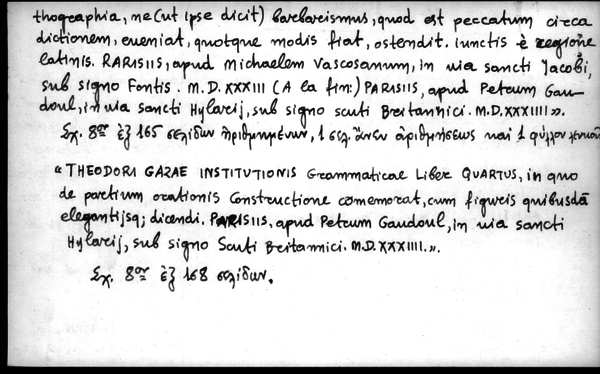 thographia, ne (ut ipse dicit) barbarismus, quod est peccatum circa
dictionem, eueniat, quotque modis fiat, ostendit. iunctis è regione
latinis. PARISIIS, apud Michaelem Vascosanum, in uia sancti Jacobi,
sub signo Fontis. M.D.XXXIII (A la fin:) PARISIIS, apud Petrum Gau-
doul, in uia sancti Hylarij, sub signo scuti Breitannici. M.D.XXXIIII».
Σχ. 8ον ἐξ 165 σελίδων ἠριθμημένων, 1 σελ. ἄνευ ἀριθμήσεως καὶ 1 φύλλου λευκοῦ
«THEODORI GAZAE INSTITUTIONIS Grammaticae Liber QUARTUS, in quo
de partium orationis Constructione comemorat, cum figuris quibusdā
elegantijsq; dicendi. PARISIIS, apud Petrum Gaudoul, in uia sancti
Hylarij, sub signo Scuti Breitannici. M.D.XXXIIII.».
Σχ. 8ον ἐξ 168 σελίδων.